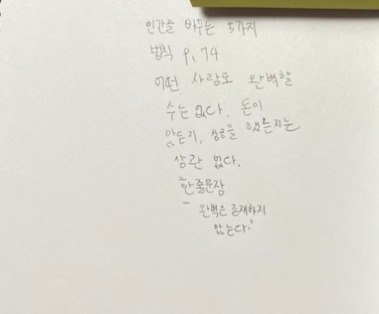 인간을 바꾸는 5가지
법칙 p, 74
어떤 사람도 완벽할
수는 없다. 돈이
많든지, 성공을 했든지는
상관 없다.
한줄문장
- 완벽은 존재하지
않는다.